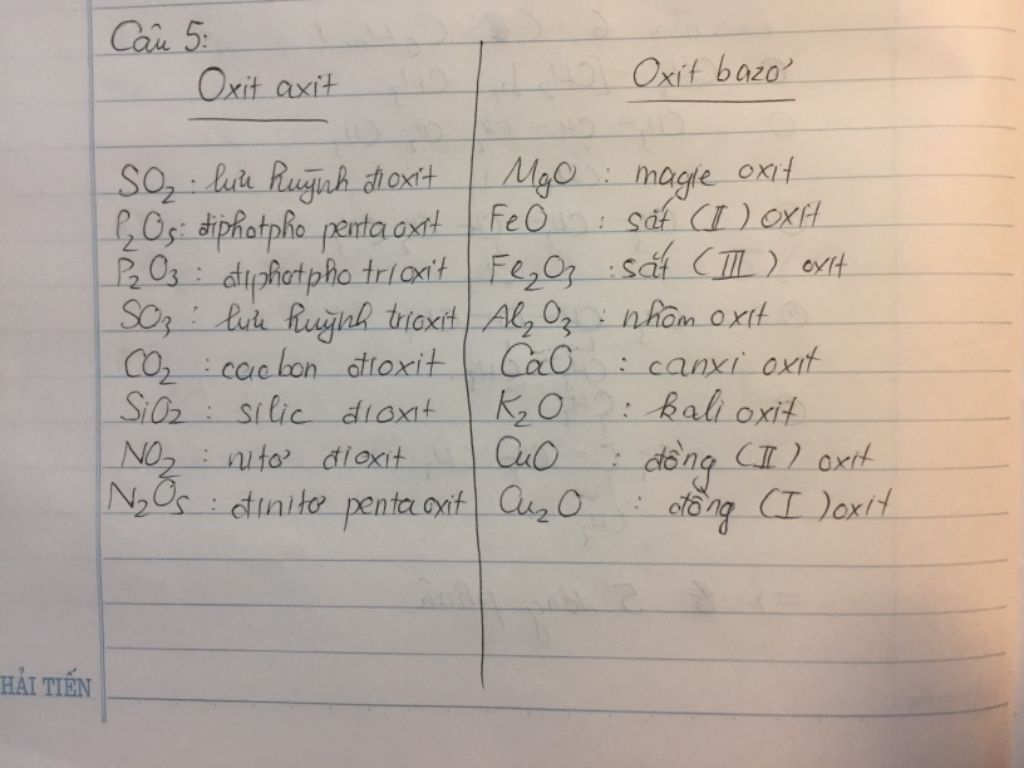 Câu 5:
Oxit axit
SO2 : lưu huỳnh đioxit
P2O5: điphotpho pentaoxit
P2O3 : điphotpho trioxit
SO3 : lưu huỳnh trioxit
CO2 : cacbon đioxit
SiO2 : silic đioxit
NO2 : nitơ đioxit
N2O5 : đinitơ pentaoxit
Oxit bazơ
MgO : magie oxit
FeO : sắt (II) oxit
Fe2O3 : sắt (III) oxit
Al2O3 : nhôm oxit
CaO : canxi oxit
K2O : kali oxit
CuO : đồng (II) oxit
Cu2O : đồng (I) oxit
HẢI TIẾN